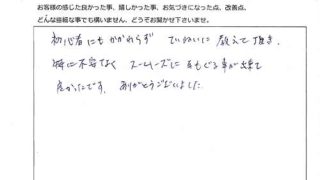 お客様の感じた良かった事、嬉しかった事、お気づきになった点、改善点、
どんな些細な事でも構いません、どうぞお聞かせ下さいませ。
初心者にもかかわらず ていねいに 教えて頂き、
特に不安なく スームーズに すもぐる事が出来て
良かったです。ありがとうございました